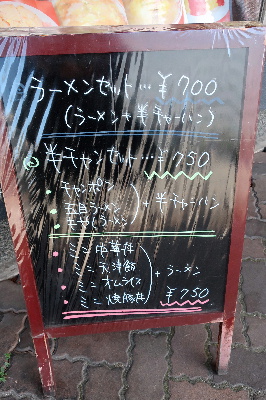 ラーメンセット…￥700
(ラーメン+半チャーハン)
半チャンセット…￥750
・チャンポン
・五目ラーメン
・もやしラーメン
+半チャーハン
・ミニ中華丼
・ミニ天津飯
・ミニオムライス
・ミニ焼豚丼
+ラーメン
￥750